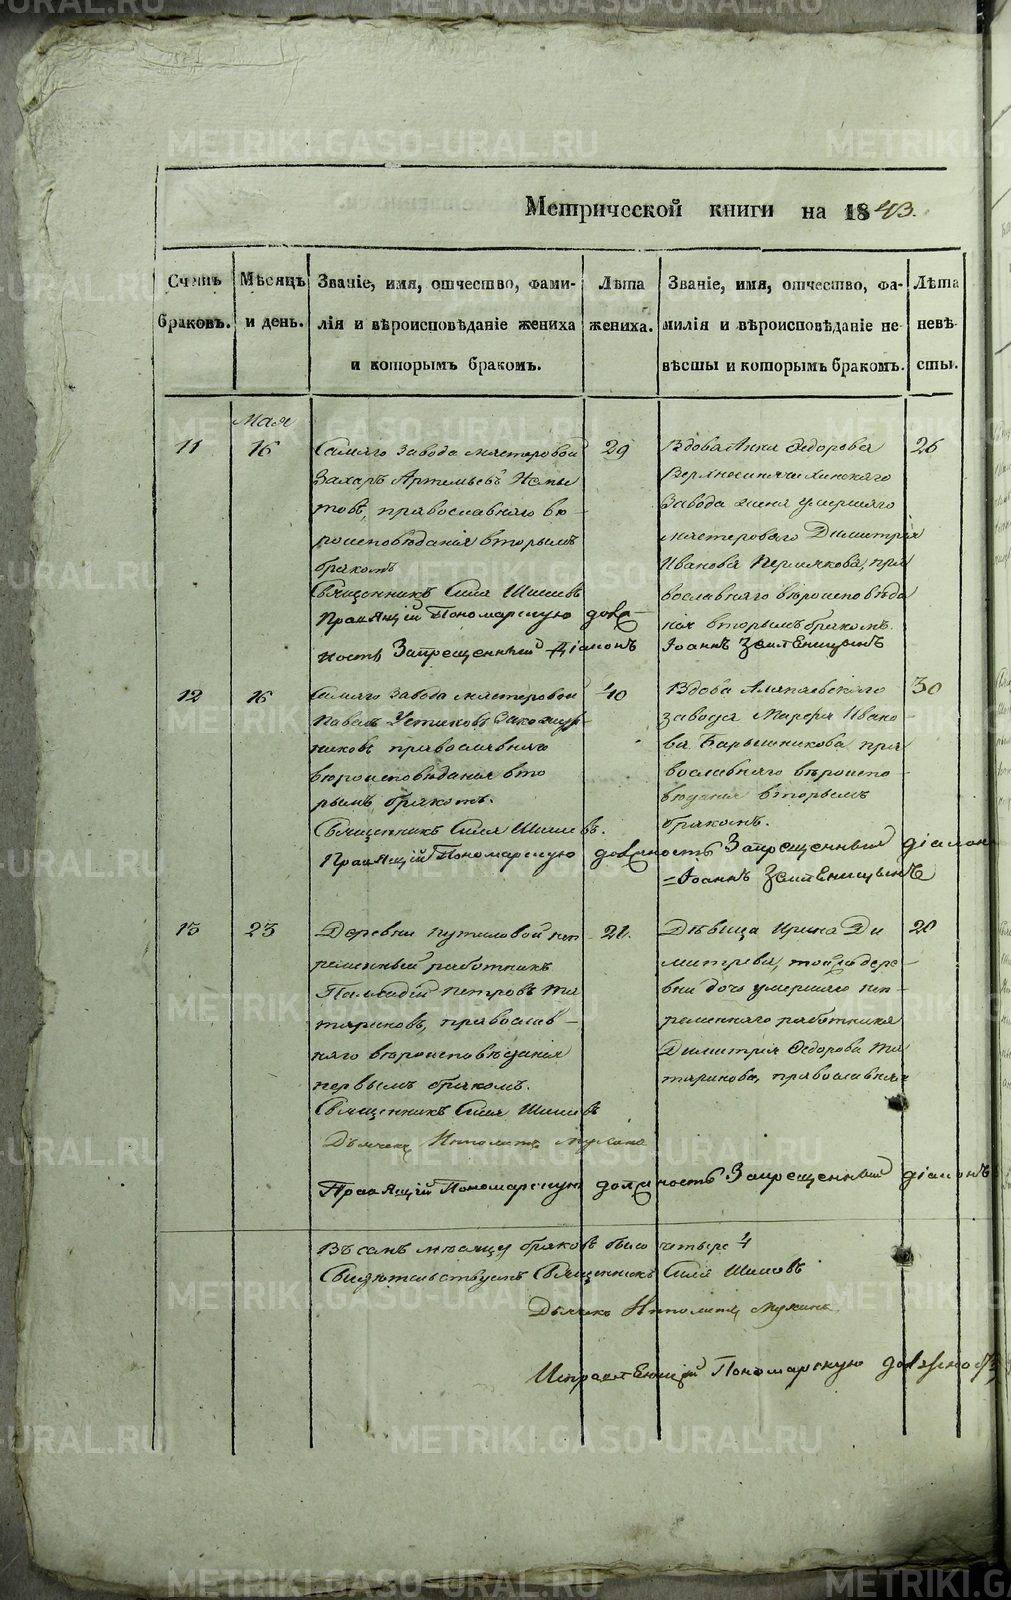 METRIKI.GASO-URAL.RU
Метрической книги на 1843.
Счетъ браковъ.
Мѣсяцъ и день.
Званіе, имя, отчество, фами-
лія и вѣроисповѣданіе жениха
и которымъ бракомъ.
Лѣта
жениха.
Званіе, имя, отчество, фа-
милія и вѣроисповѣданіе не-
вѣсты и которымъ бракомъ.
Лѣта
невѣ-
сты.
Мая
11
16
Самаго завода мастеровой
Захаръ Артемьевъ
товъ, православнаго вѣ-
роисповѣданія вторымъ
бракомъ
Священникъ Сила Шишевъ
Правящій Пономарскую долж-
ность Запрещенный Діаконъ
29
Вдова Анна Ѳедорова
Верхнесинячихинскаго
завода жена умершаго
мастероваго Димитрія
Иванова Пермякова, пра
вославнаго вѣроисповѣда
нія вторымъ бракомъ.
Іоаннъ Землѣницынъ
26
12
16
Самаго завода мастеровой
Павелъ Устиновъ
никовъ православнаго
вѣроисповѣданія вто
рымъ бракомъ.
Священникъ Сила Шишевъ.
Правящій Пономарскую должность Запрещенный діаконъ
=Іоаннъ Землѣницынъ
40
Вдова Алапаевскаго
завода Марфа Ивано-
ва Барышникова пра
вославнаго вѣроиспо-
вѣданія вторымъ
бракомъ.
30
13
23
Деревни Путиловой неп
ременный работникъ
Палладій Петровъ Та
тариновъ, православ-
наго вѣроисповѣданія
первымъ бракомъ.
Священникъ Сила Шишевъ
Дьячекъ Ипполитъ Мухинъ
Правящій Пономарскую должность Запрещенный діаконъ
21.
Дѣвица Ирина Ди
митріева, той же дере-
вни дочь умершаго неп-
ременнаго работника
Димитрія Ѳедорова Та
таринова, православная
20
Въ семъ мѣсяцѣ браковъ было четыре 4
Свидѣтельствуемъ Священникъ Сила Шишевъ
Дьячекъ Ипполитъ Мухинъ
Исправляющій Пономарскую должность